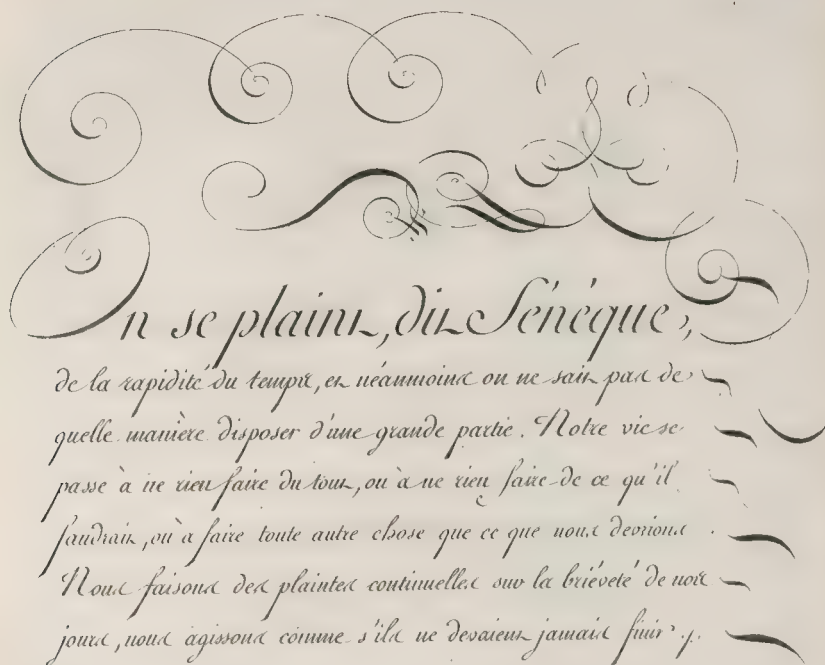 On se plaint, dit Sénèque,
de la rapidité du temps, et néanmoins on ne sait pas de
quelle manière disposer d'une grande partie. Notre vie se
passe à ne rien faire du tout, ou à ne rien faire de ce qu'il
faudrait, ou à faire toute autre chose que ce que nous devrions.
Nous faisons des plaintes continuelles sur la briéveté de nos
jours, nous agissons comme s'ils ne devaient jamais finir.